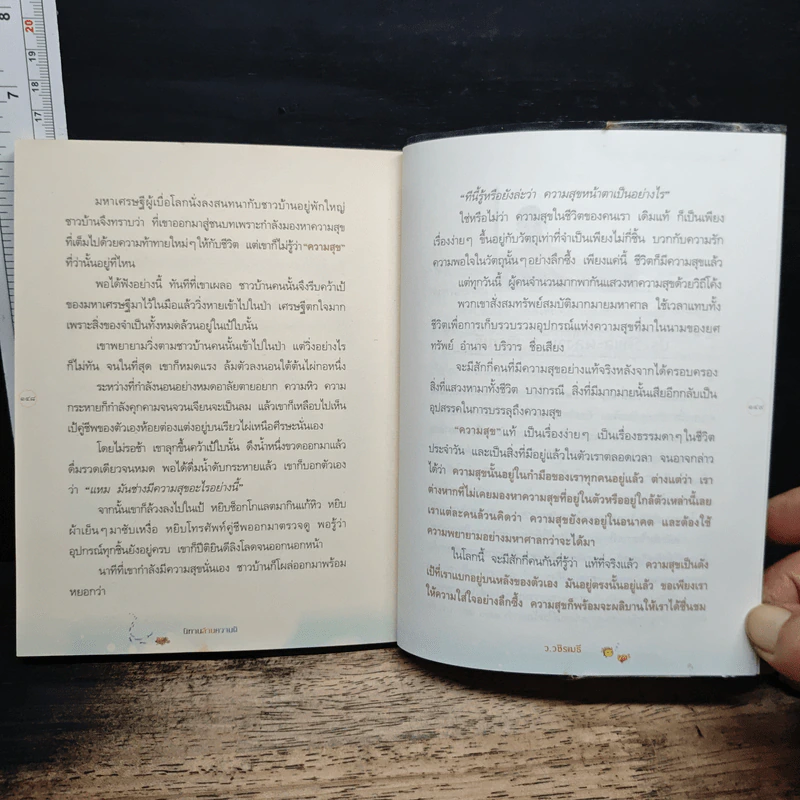 8
7
20
19
18
17
มหาเศรษฐีผู้เบื่อโลกนั่งลงสนทนากับชาวบ้านอยู่พักใหญ่
ชาวบ้านจึงทราบว่า ที่เขาออกมาสู่ชนบทเพราะกำลังมองหาความสุข
ที่เต็มไปด้วยความท้าทายใหม่ๆ ให้กับชีวิต แต่เขาก็ไม่รู้ว่า "ความสุข"
ที่ว่านั้นอยู่ที่ไหน
พอได้ฟังอย่างนี้ ทันทีที่เขาเผลอ ชาวบ้านคนนั้นจึงรีบคว้าเป้
ของมหาเศรษฐีมาไว้ในมือแล้ววิ่งหายเข้าไปในป่า เศรษฐีตกใจมาก
เพราะสิ่งของจำเป็นทั้งหมดล้วนอยู่ในเป้ใบนั้น
เขาพยายามวิ่งตามชาวบ้านคนนั้นเข้าไปในป่า แต่วิ่งอย่างไร
ก็ไม่ทัน จนในที่สุด เขาก็หมดแรง ล้มตัวลงนอนใต้ต้นไผ่กอหนึ่ง
ระหว่างที่กำลังนอนอย่างหมดอาลัยตายอยาก ความหิว ความ
กระหายก็กำลังคุกคามจนจวนเจียนจะเป็นลม แล้วเขาก็เหลือบไปเห็น
เป้คู่ชีพของตัวเองห้อยต่องแต่งอยู่บนเรียวไผ่เหนือศีรษะนั่นเอง
โดยไม่รอช้า เขาลุกขึ้นคว้าเป้ใบนั้น ดึงน้ำหนึ่งขวดออกมาแล้ว
ดื่มรวดเดียวจนหมด พอได้ดื่มน้ำดับกระหายแล้ว เขาก็บอกตัวเอง
ว่า "แหม มันช่างมีความสุขอะไรอย่างนี้"
จากนั้นเขาก็ล้วงลงไปในเป้ หยิบช็อกโกแลตมากินแก้หิว หยิบ
ผ้าเย็นๆ มาซับเหงื่อ หยิบโทรศัพท์คู่ชีพออกมาตรวจดู พอรู้ว่า
อุปกรณ์ทุกชิ้นยังอยู่ครบ เขาก็ปีติยินดีลิงโลดจนออกนอกหน้า
นาทีที่เขากำลังมีความสุขนั่นเอง ชาวบ้านก็โผล่ออกมาพร้อม
หยอกว่า
นิทานล้านความดี
"ทีนี้รู้หรือยังล่ะว่า ความสุขหน้าตาเป็นอย่างไร"
ใช่หรือไม่ว่า ความสุขในชีวิตของคนเรา เดิมแท้ ก็เป็นเพียง
เรื่องง่ายๆ ขึ้นอยู่กับวัตถุเท่าที่จำเป็นเพียงไม่กี่ชิ้น บวกกับความรัก
ความพอใจในวัตถุนั้นๆ อย่างลึกซึ้ง เพียงแค่นี้ ชีวิตก็มีความสุขแล้ว
แต่ทุกวันนี้ ผู้คนจำนวนมากพากันแสวงหาความสุขด้วยวิถีโค้ง
พวกเขาสั่งสมทรัพย์สมบัติมากมายมหาศาล ใช้เวลาแทบทั้ง
ชีวิตเพื่อการเก็บรวบรวมอุปกรณ์แห่งความสุขที่มาในนามของยศ
ทรัพย์ อำนาจ บริวาร ชื่อเสียง
จะมีสักกี่คนที่มีความสุขอย่างแท้จริงหลังจากได้ครอบครอง
สิ่งที่แสวงหามาทั้งชีวิต บางกรณี สิ่งที่มีมากมายนั้นเสียอีกกลับเป็น
อุปสรรคในการบรรลุถึงความสุข
"ความสุข" แท้ เป็นเรื่องง่ายๆ เป็นเรื่องธรรมดาๆ ในชีวิต
ประจำวัน และเป็นสิ่งที่มีอยู่แล้วในตัวเราตลอดเวลา จนอาจกล่าว
ได้ว่า ความสุขนั้นอยู่ในกำมือของเราทุกคนอยู่แล้ว ต่างแต่ว่า เรา
ต่างหากที่ไม่เคยมองหาความสุขที่อยู่ในตัวหรืออยู่ใกล้ตัวเหล่านี้เลย
เราแต่ละคนล้วนคิดว่า ความสุขยังคงอยู่ในอนาคต และต้องใช้
ความพยายามอย่างมหาศาลกว่าจะได้มา
ในโลกนี้ จะมีสักกี่คนกันที่รู้ว่า แท้ที่จริงแล้ว ความสุขเป็นดัง
เป้ที่เราแบกอยู่บนหลังของตัวเอง มันอยู่ตรงนั้นอยู่แล้ว ขอเพียงเรา
ให้ความใส่ใจอย่างลึกซึ้ง ความสุขก็พร้อมจะผลิบานให้เราได้ชื่นชม
ว.วชิรเมธี